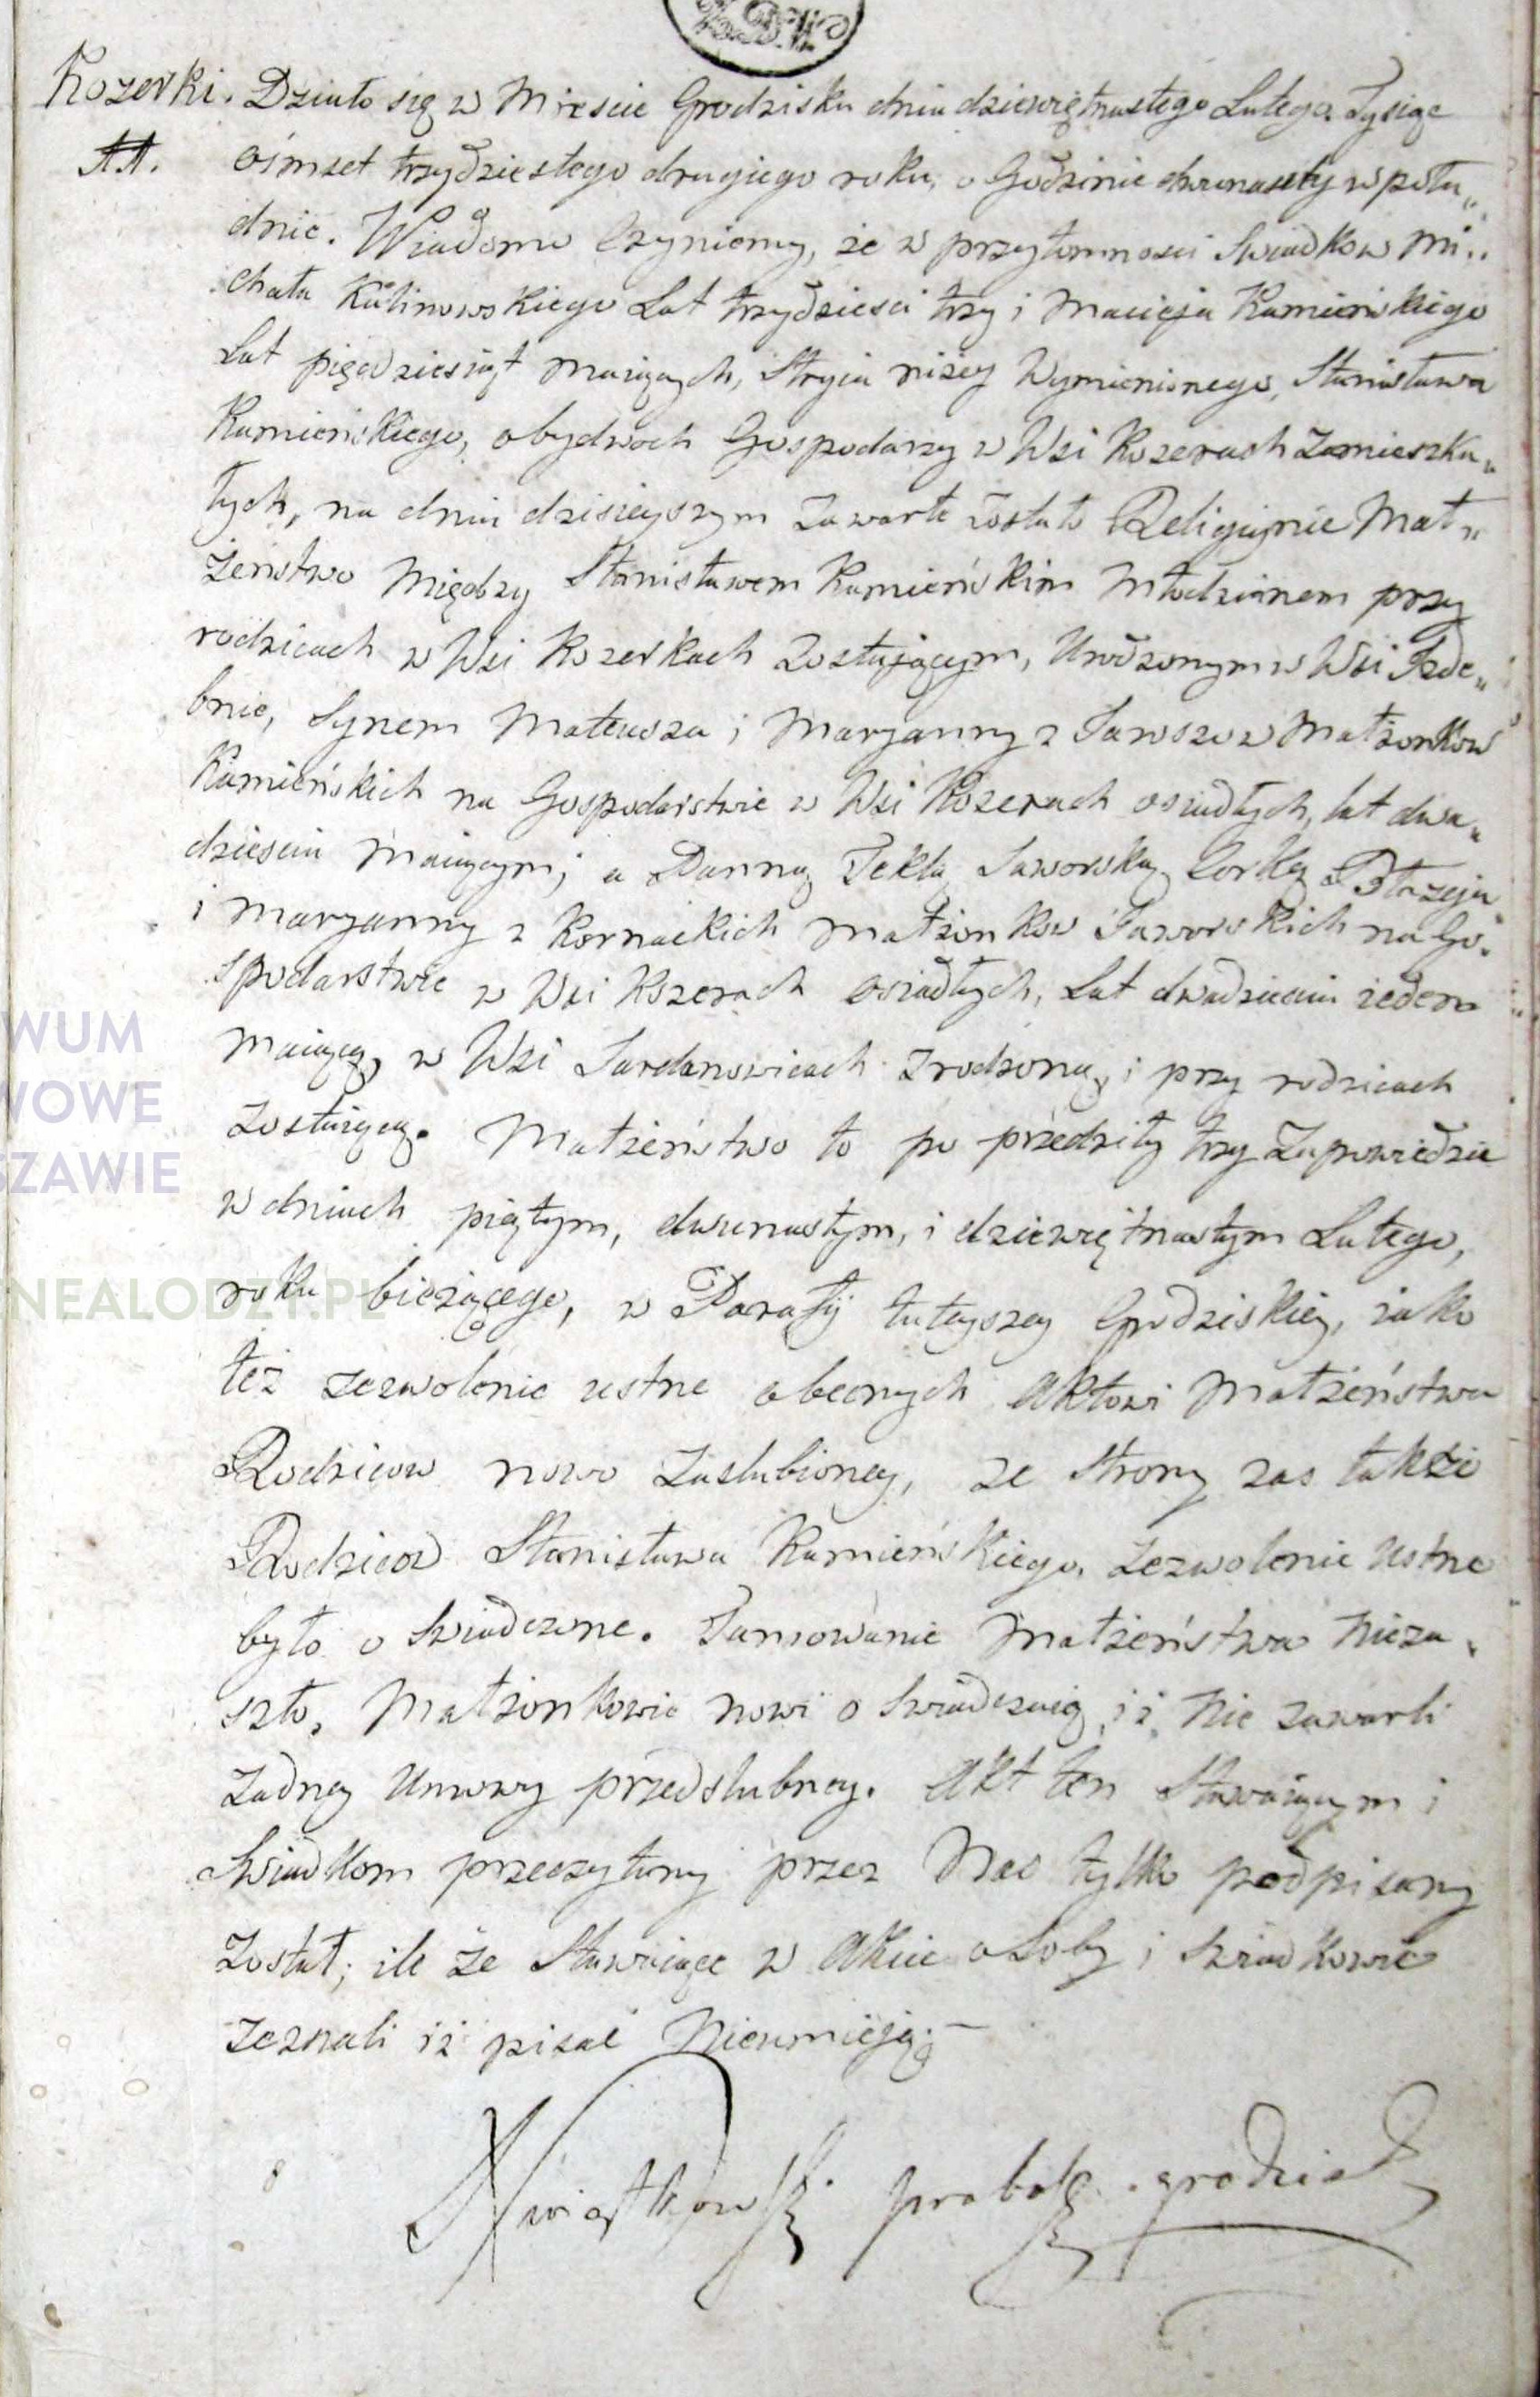 Kozerki. Działo się w Mieście Grodzisku dnia dziewiętnastego Lutego Tysiąc
11. ośmset trzydziestego drugiego roku, o Godzinie dwunastey w połu„
dnie. Wiadomo Czyniemy, że w przytomności Swiadkow Mi„
chała Kalinowskiego Lat trzydzieści trzy i Macieja Kamieńskiego
Lat pięćdziesiąt maiących, Stryia niżey Wymienionego, Stanisława
Kamieńskiego, obydwoch Gospodarzy w Wsi Kozerach Zamieszka„
łych, na dniu dzisieyszym Zawarte zostało Religijnie Mał„
żeństwo Między Stanisławem Kamieńskim Młodzianem przy
rodzicach w Wsi Kozerkach Zostającym, Urodzonym w Wsi Izde„
bnie, Synem Mateusza i Maryanny z Jawszow Małżonkow
Kamieńskich na Gospodarstwie w Wsi Kozerach osiadłych, lat dwa„
dzieścia Maiącym; a Panną Teklą Jaworską Corką Błażeja
i Maryanny z Kornackich Małżonkow Jaworskich na Go„
spodarstwie w Wsi Kozerach osiadłych, Lat dwadzieścia ieden
Maiącą, w Wsi Jordanowicach Zrodzoną, i przy rodzicach
Zostaiącą. Małżeństwo to po przedziły trzy Zapowiedzie
w dniach piątym, dwunastym, i dziewiętnastym Lutego,
roku bieżącego, w Parafij tuteyszey Grodziskiey, iako
też zezwolenie ustne obecnych Aktowi Małżeństwa
Rodzicow nowo Zaślubioney, ze Strony zas także
Rodzicow Stanisława Kamieńskiego, Zezwolenie Ustne
było o Swiadczone. Tamowanie Małżeństwa Nieza„
szło, Małżonkowie nowi o Swiadczaią, iż Nie zawarli
Żadney Umowy przedślubney. Akt ten Stawaiącym i
Swiadkom przeczytany przez Nas tylko podpisany
Został, ile że Stawaiące w Akcie osoby i Swiadkowie
Zeznali iż pisać Nieumieją.—
X Kwiatkowski probosz. grodzisk
WUM
WOWE
SZAWIE
NEALODZY.PL